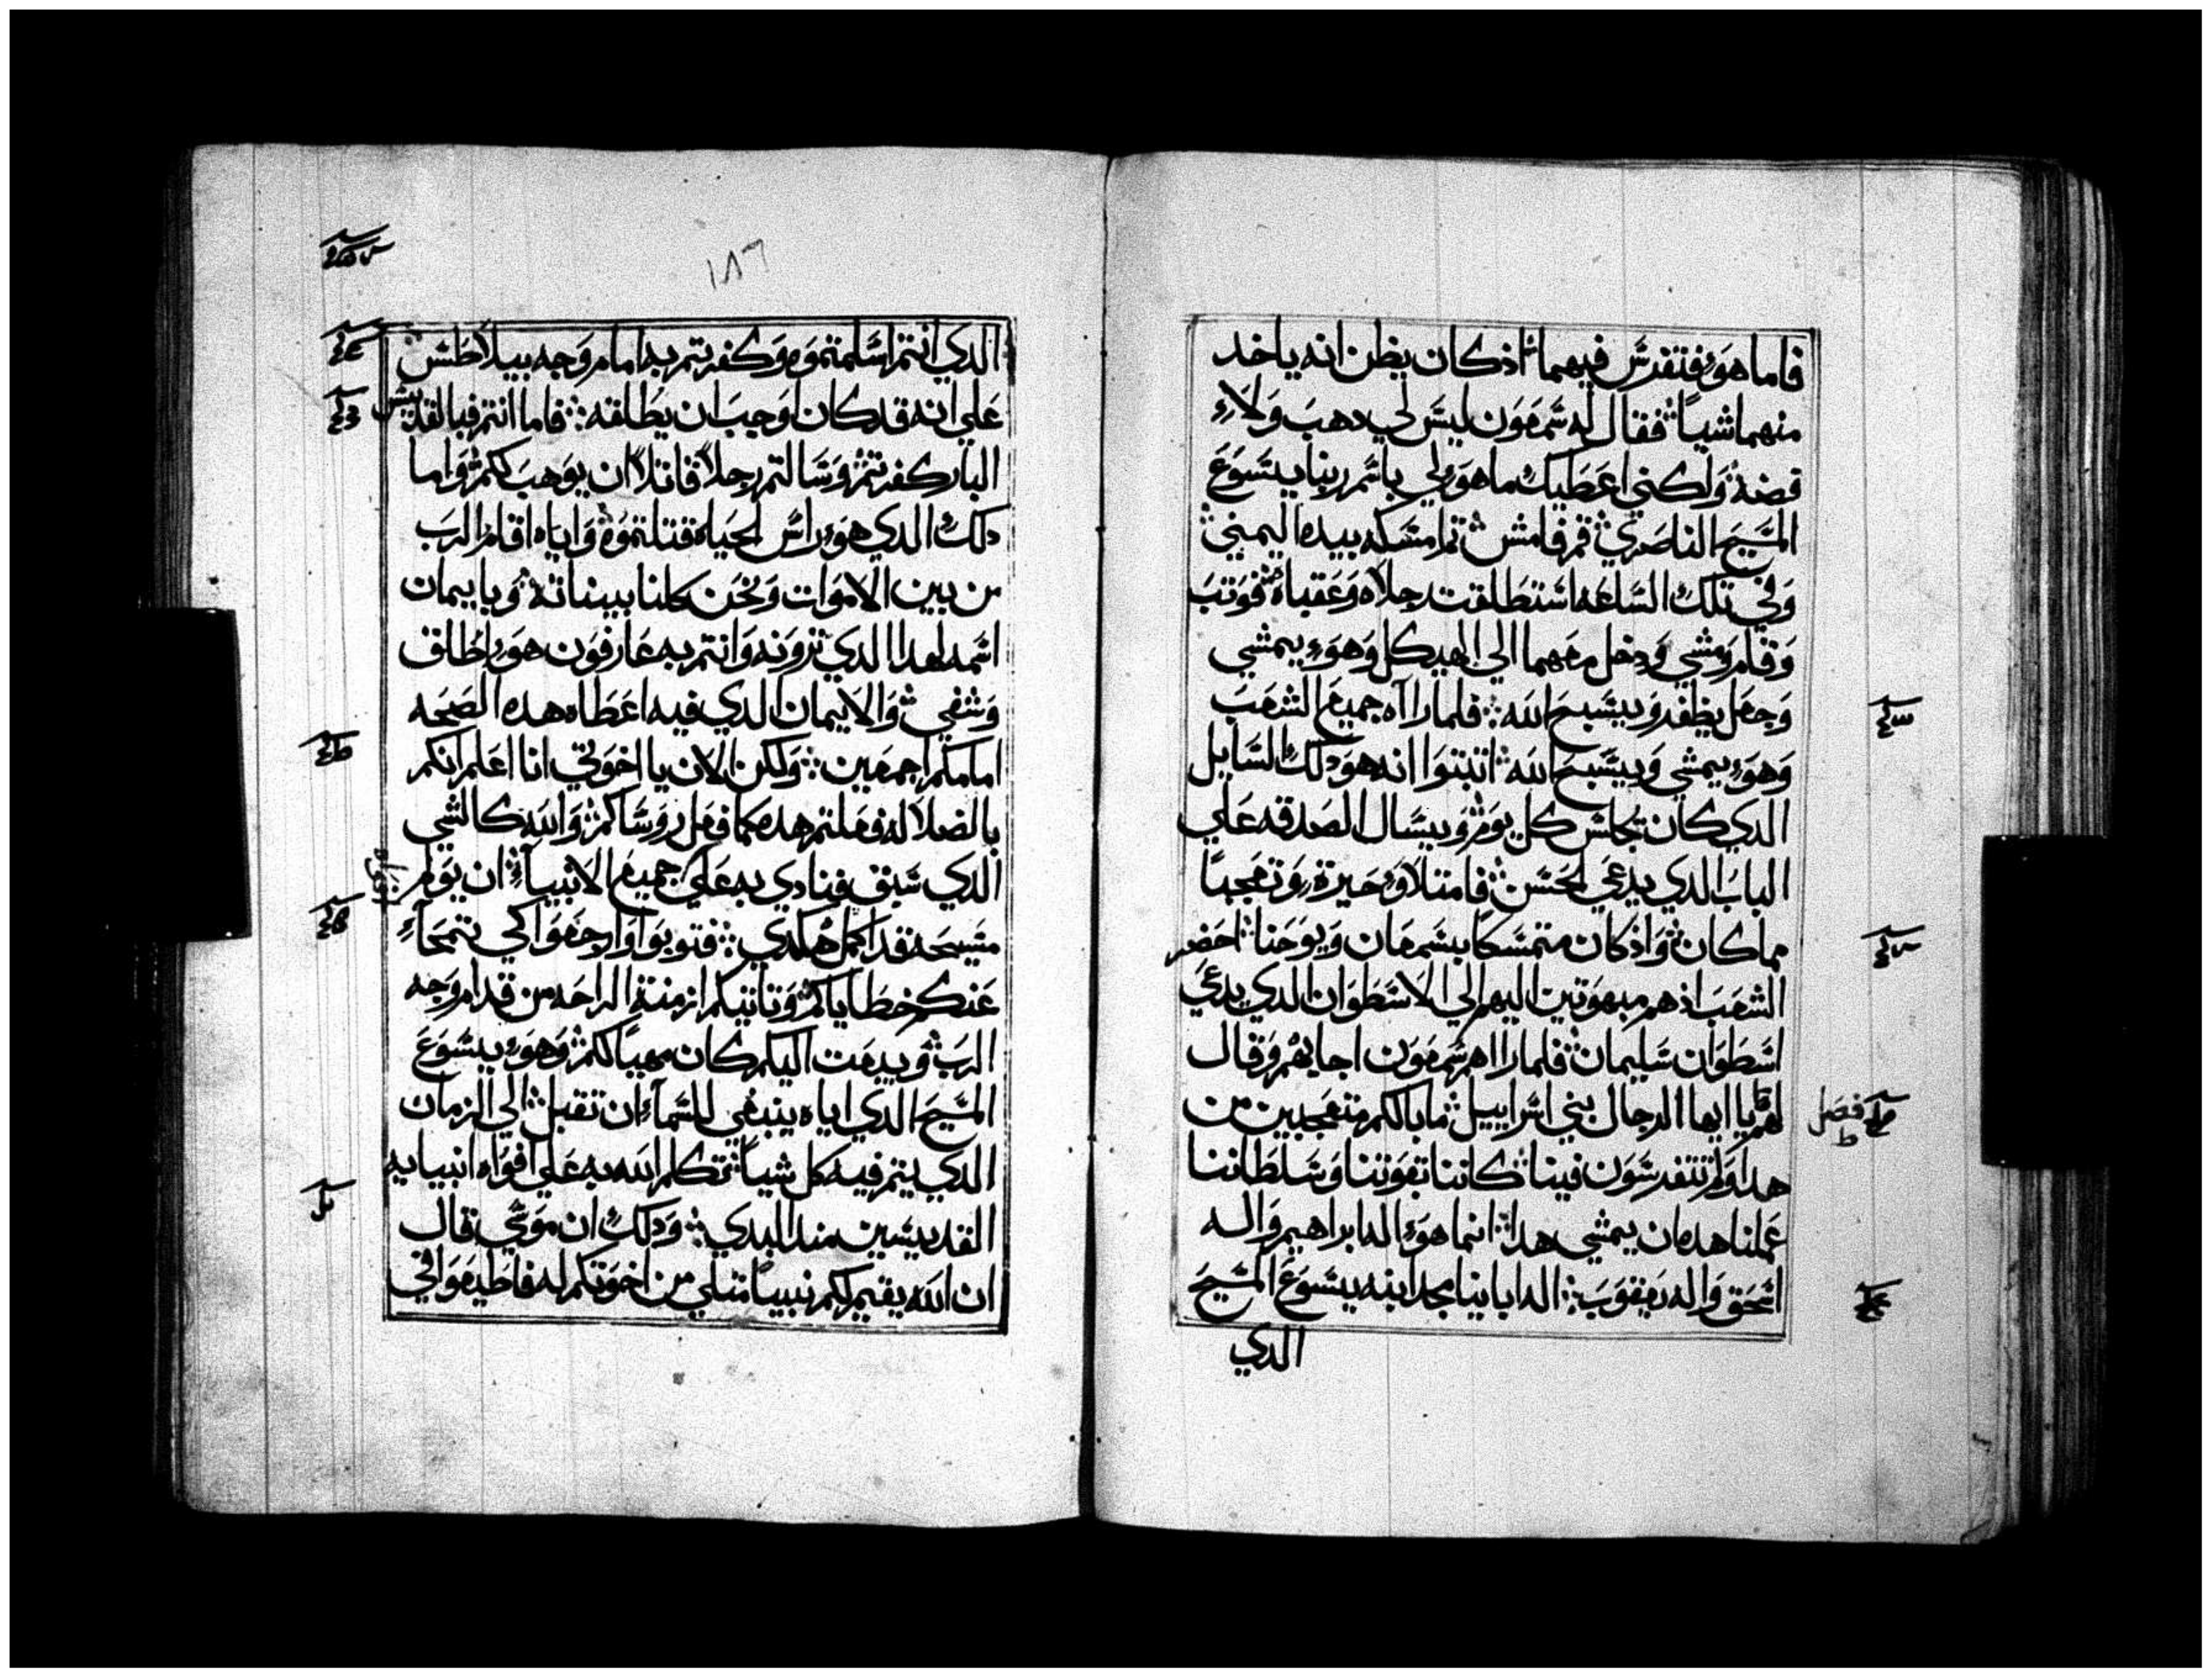 فاما هو فتفرس فيهما اذ كان يظن انه ياخد
منهما شياً فقال له شمعون ليس لي دهب ولا
فضه ولكني اعطيك ما هو لي باسم ربنا يسوع
المسيح الناصري قم فامش ثم امسكه بيده اليمني
وفي تلك الساعه استطلقت رجلاه وعقباه فوتب
وقام ومشي ودخل معهما الي الهيكل وهو يمشي
وجعل يطفر ويسبح الله فلما راآه جميع الشعب
وهو يمشي ويسبح الله اتبتوا انه هو دلك السايل
الدي كان يجلس كل يوم ويسال الصدقه علي
الباب الدي يدعي الحسن فامتلاو حيرة وتعجباً
مما كان واذ كان متمسكاً بسمعان ويوحنا احضر
الشعب اذ هم مبهوتين اليهم الي الاسطوان الدي يدعي
اسطوان سليمان فلما راهم شمعون اجابهم وقال
لهم يا ايها الرجال بني اسراييل ما بالكم متعجبين من
هدا ولم تتفرسون فينا كاننا بقوتنا وسلطاننا
عملنا هده ان يمشي هدا انما هو اله ابراهيم واله
اسحق واله يعقوب اله اباينا مجد ابنه يسوع المسيح
الدي
فصل
١٨٦
الدي انتم اسلمتموه وكفرتم به امام وجه بيلاطس
علي انه قد كان اوجب ان يطلقه فاما انتم فبالقديس
البار كفرتم وسالتم رجلاً قاتلاً ان يوهب لكم واما
دلك الدي هو راس الحياه قتلتموه واياه اقام الرب
من بين الاموات ونحن كلنا بيناته وبايمان
اسمه لهدا الدي ترونه وانتم به عارفون هو اطلق
وشفي والايمان الدي فيه اعطاه هده الصحه
امامكم اجمعين ولكن الان يا اخوتي انا اعلم انكم
بالضلاله فعلتم هده كما فعل روساكم والله كالشي
الدي سبق فنادي به علي جميع الانبياء ان يولم
مسيحه قد اكمل هكدي فتوبوا وارجعوا كي تتمحاء
عنكم خطاياكم وتاتيكم ازمنة الراحه من قدام وجه
الرب ويبعت اليكم كان مهياً لكم وهو يسوع
المسيح الدي اياه ينبغي للسماء ان تقبل الي الزمان
الدي يتم فيه كل شياً تكلم الله به علي افواه انبيايه
القديسين مند البدي ودلك ان موسي قال
ان الله يقيم لكم نبياً متلي من اخوتكم له فاطيعوا في